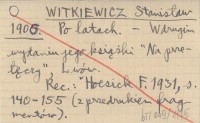 WITKIEWICZ Stanisław
1906. Po latach. - W drugim
wydaniu jego książki "Na prze-
łęczy" Lwów.
Rec.: Hoesick F. 1931, s.
140-155 (z przedrukiem frag
mentów).